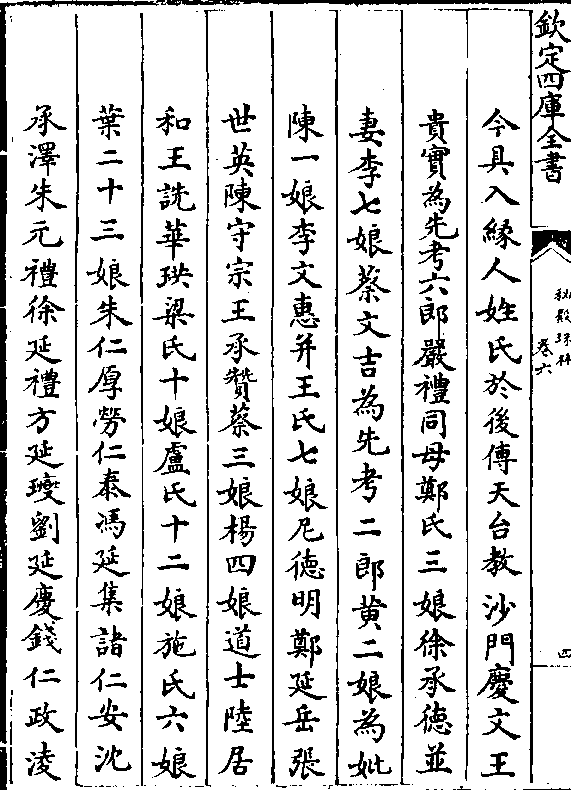 欽定四庫全書
秘殿珠林
卷六
四
今具入緣人姓氏於後傳天台教沙門慶文王
貴實為先考六郎嚴禮同母鄭氏三娘徐承德並
妻李七娘蔡文吉為先考二郎黄二娘為妣
陳一娘李文惠并王氏七娘尼德明鄭延岳張
世英陳守宗王承贊蔡三娘楊四娘道士陸居
和王詵華珙梁氏十娘盧氏十二娘施氏六娘
葉二十三娘朱仁厚勞仁泰馮延集諸仁安沈
承澤朱元禮徐延禮方延劉延慶錢仁政淩